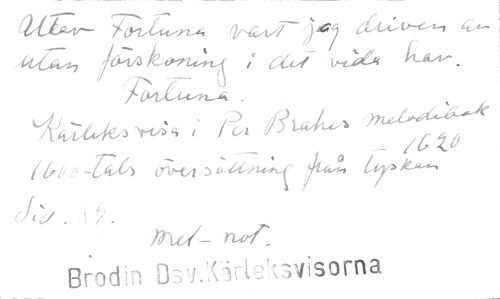 Utav Fortuna vart jag driven an
utan förskoning i det vida hav.
Fortuna.
Kärleksvisa i Per Brahes melodibok
1620
1600-tals översättning från tyskan
Sid. 89.
Mel-not.
Brodin Dsv.Kärleksvisorna